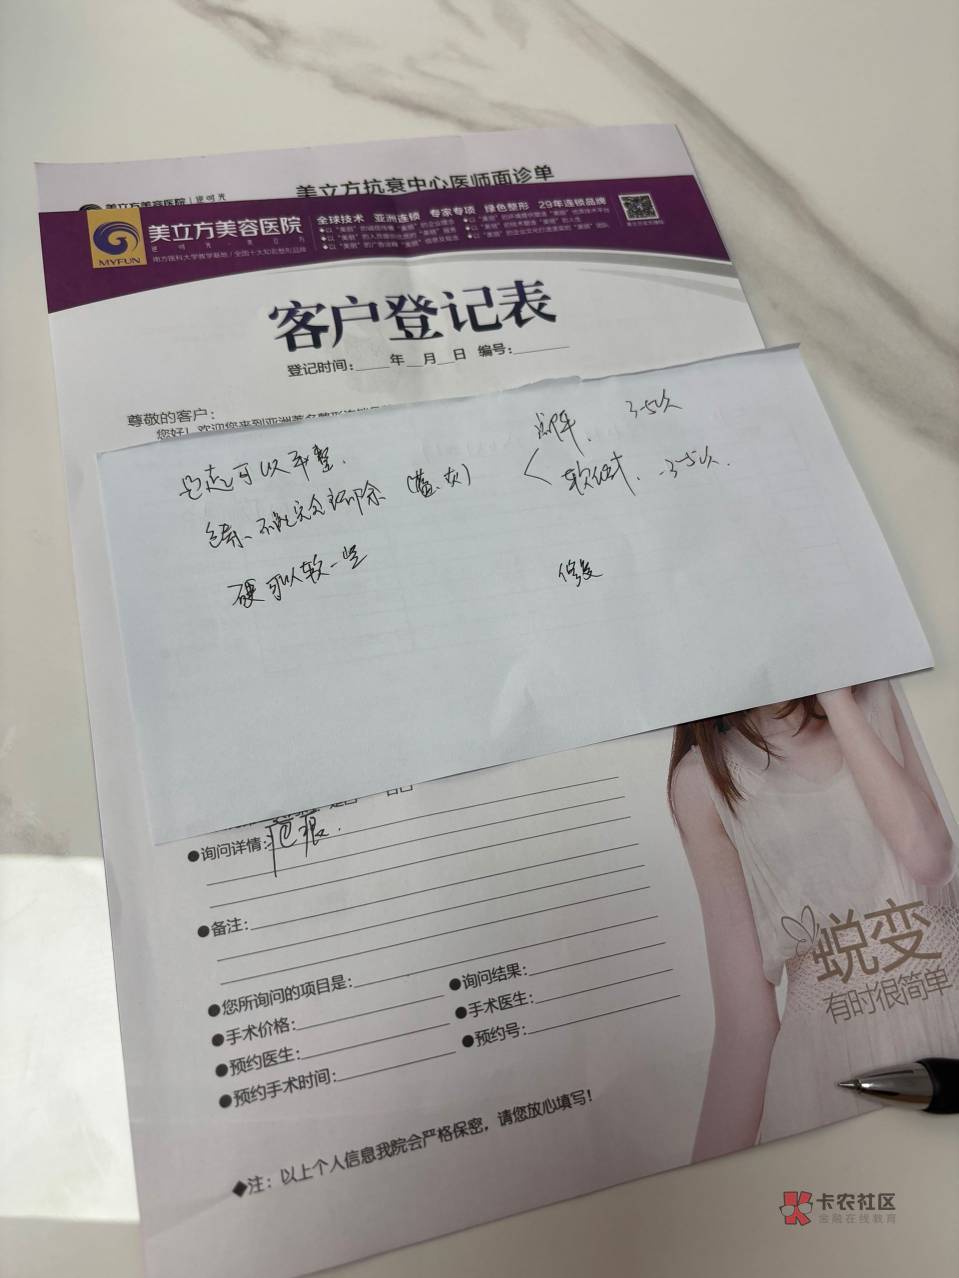 美立方美容医院
美立方抗衰中心医师面诊单
美立方美容医院
MYFUN
南方医科大学教学基地/全国十大知名整形品牌
全球技术 亚洲连锁 专家专项 绿色整形 29年连锁品牌
客户登记表
登记时间:____年__月__日 编号:______
尊敬的客户:
您好!欢迎您来到亚洲著名整形连锁
可以平整.
点阵. 3-5次
色素、不能完全去除(蓝、灰)
软化针. 3-5次.
硬可以软一些
修复
●询问详情:疤痕.
●备注:
●您所询问的项目是:
●询问结果:
●手术价格:
●手术医生:
●预约医生:
●预约号:
●预约手术时间:
◆注:以上个人信息我院会严格保密,请您放心填写!
蜕变
有时很简单
卡农社区
金融在线教育